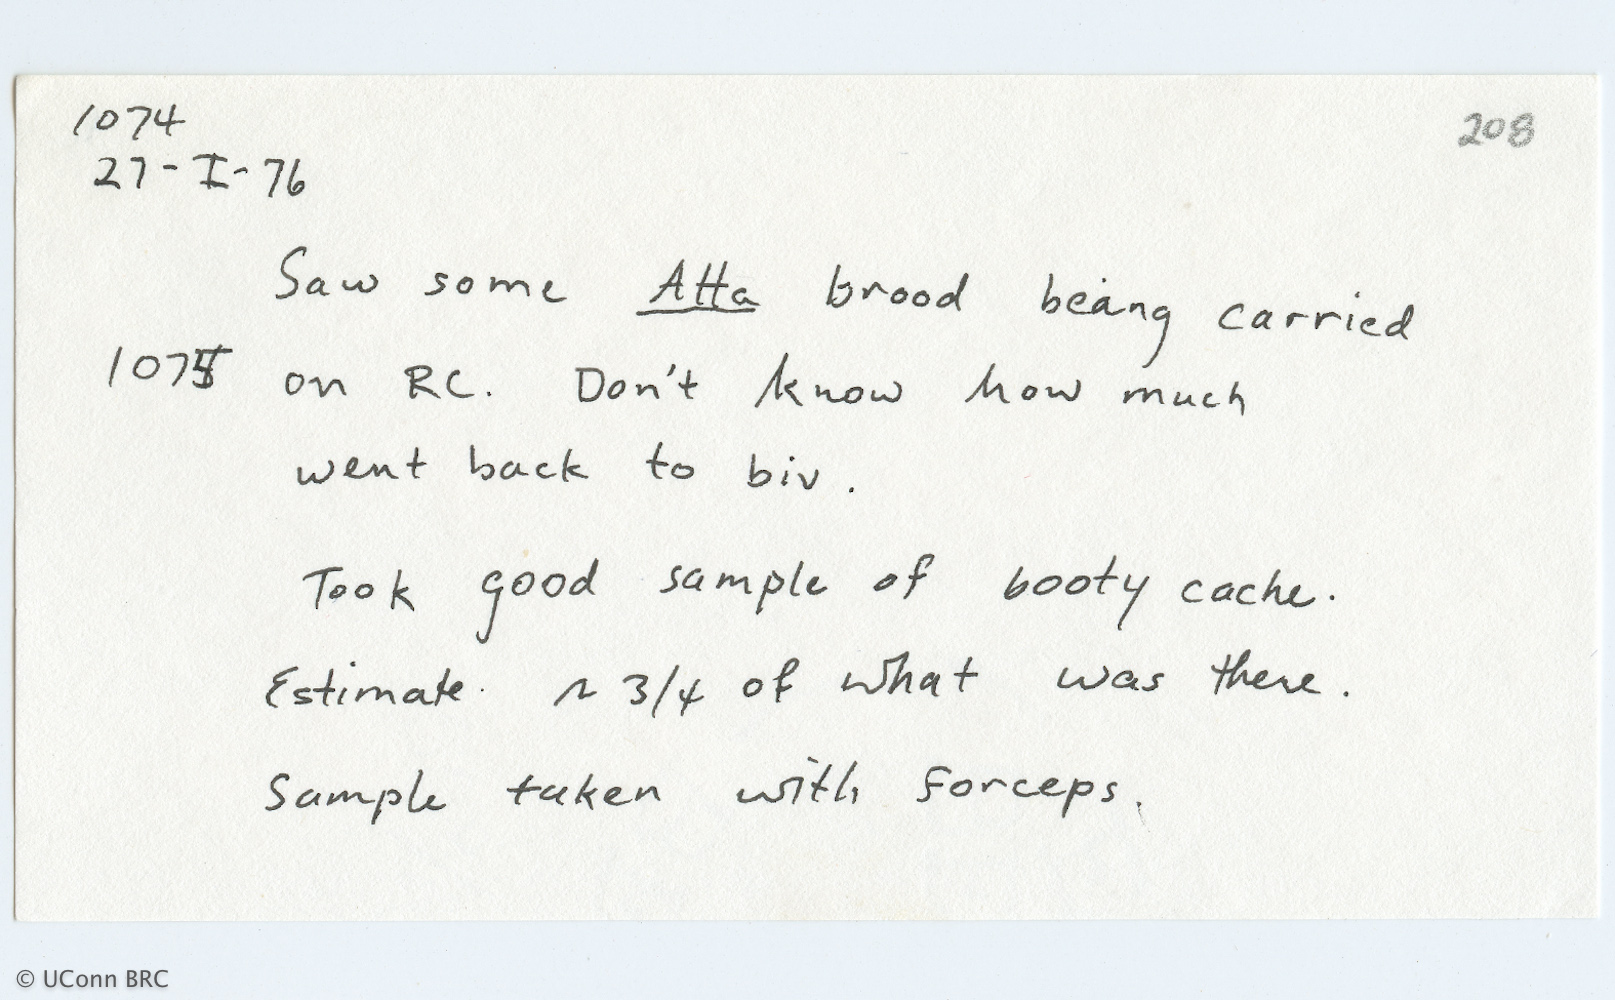 1074
208
27-I-76
Saw some Atta brood being carried
1075 on RC. Don't know how much
went back to biv.
Took good sample of booty cache.
Estimate. ~ 3/4 of what was there.
Sample taken with forceps.
© UConn BRC